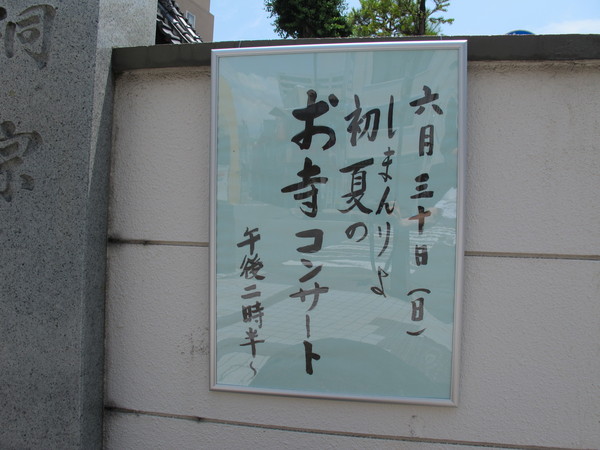 六月三十日(日)
しまんりよ
初夏の
お寺コンサート
午後二時半～
洞
宗